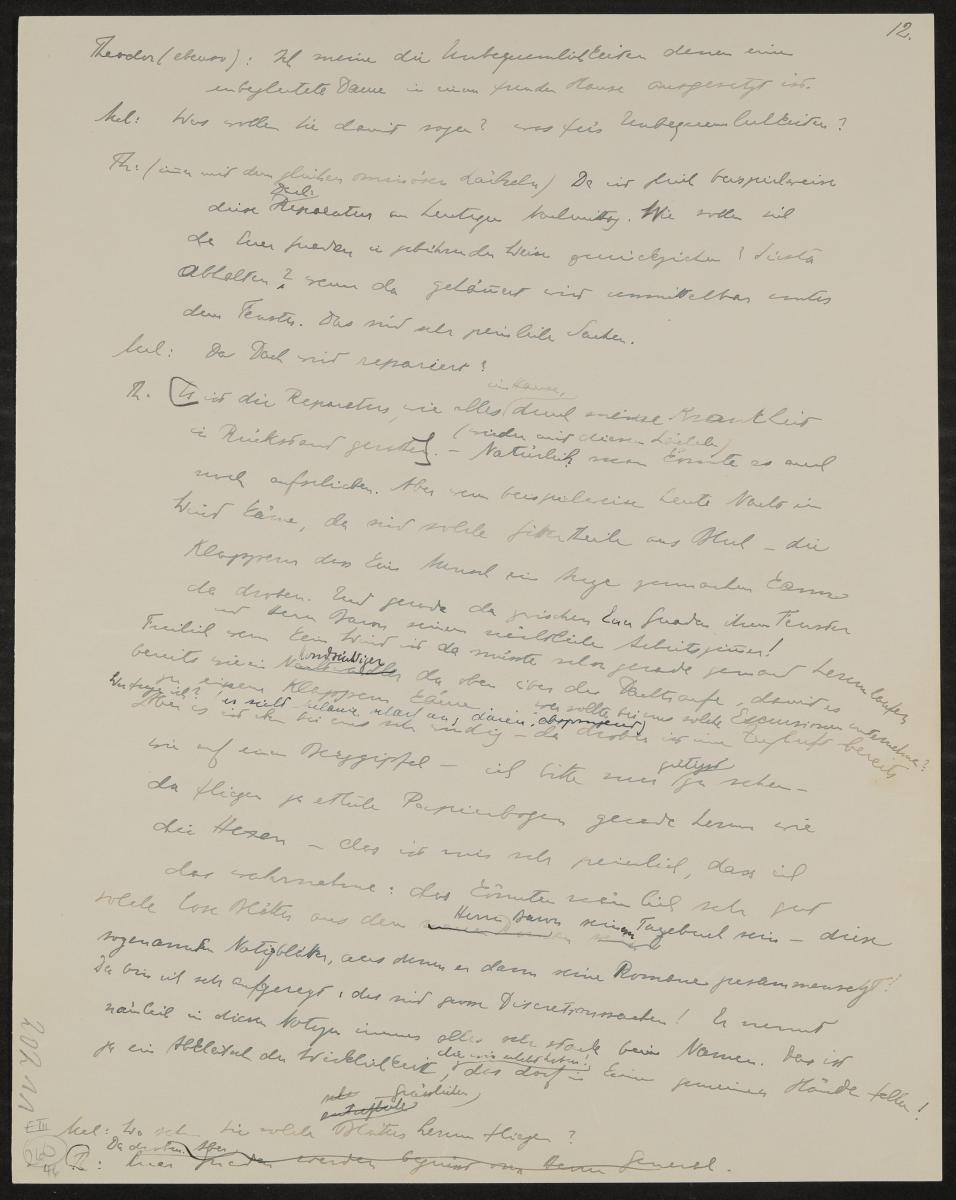 12.
Theodor (ebenso): Ich meine die Unbequemlichkeiten denen eine
unbegleitete Dame in einem fremden Hause ausgesetzt ist.
Mel: Was wollen Sie damit sagen? was für Unbequemlichkeiten?
Th: (immer mit dem gleichen ominösen Lächeln) Da ist gleich beispielweise
Dach:
diese Reparatur am heutigen Nachmittag. Wie sollen sich
da Euer Gnaden in gebührender Weise zurückziehen? Siesta
abhalten? wenn da gehämmert wird unmittelbar unter
dem Fenster. Das sind sehr peinliche Sachen.
Mel: Das Dach wird repariert?
im Hause,
Th. Es ist die Reparatur, wie alles durch meine Krankheit
(wieder mit diesem Lächeln)
in Rückstand geraten. – Natürlich man könnte es auch
noch aufschieben. Aber wenn beispielweise heute Nacht ein
Wind käme, da sind solche Gitterteile aus Blech – die
klappern dass kein Mensch ein Auge zumachen kann
da droben. Und gerade da zwischen Euer Gnaden ihrem Fenster
und Herrn Baron seinem nächtlichen Arbeitszimmer!
Freilich wenn kein Wind ist da müsste schon gerade jemand herumlaufen
mondsüchtiger
bereits wie ein Nachtwandler da oben über die Dachtraufe, damit es
zu einem Klappern käme. wer sollte bei uns solche Excursionen unternehmen?
Aber es ist ja bei uns sehr windig – da droben ist eine Zugluft bereits
wie auf einem Berggipfel – ich bitte nur jetzt zu sehen –
da fliegen ja etliche Papierbogen gerade herum wie
die Hexen – das ist mir sehr peinlich, dass ich
das wahrnehme: das könnten nämlich sehr gut
solche lose Blätter aus dem Herrn Baron seinem Tagebuch sein – diese
sogenannten Notizblätter, aus denen er dann seine Romane zusammensetzt!
Da bin ich sehr aufgeregt, das sind grosse Discretionssachen! Er nennt
nämlich in diesen Notizen immer alles sehr stark beim Namen. Das ist
die wir erlebt haben!
ja ein Abklatsch der Wirklichkeit, das darf in keine gemeinen Hände fallen!
Mel: Wo sehen Sie solche Blätter herum fliegen?
Da droben. Aber
Th: Euer Gnaden werden begrüsst von Herrn General.
202 11
E III